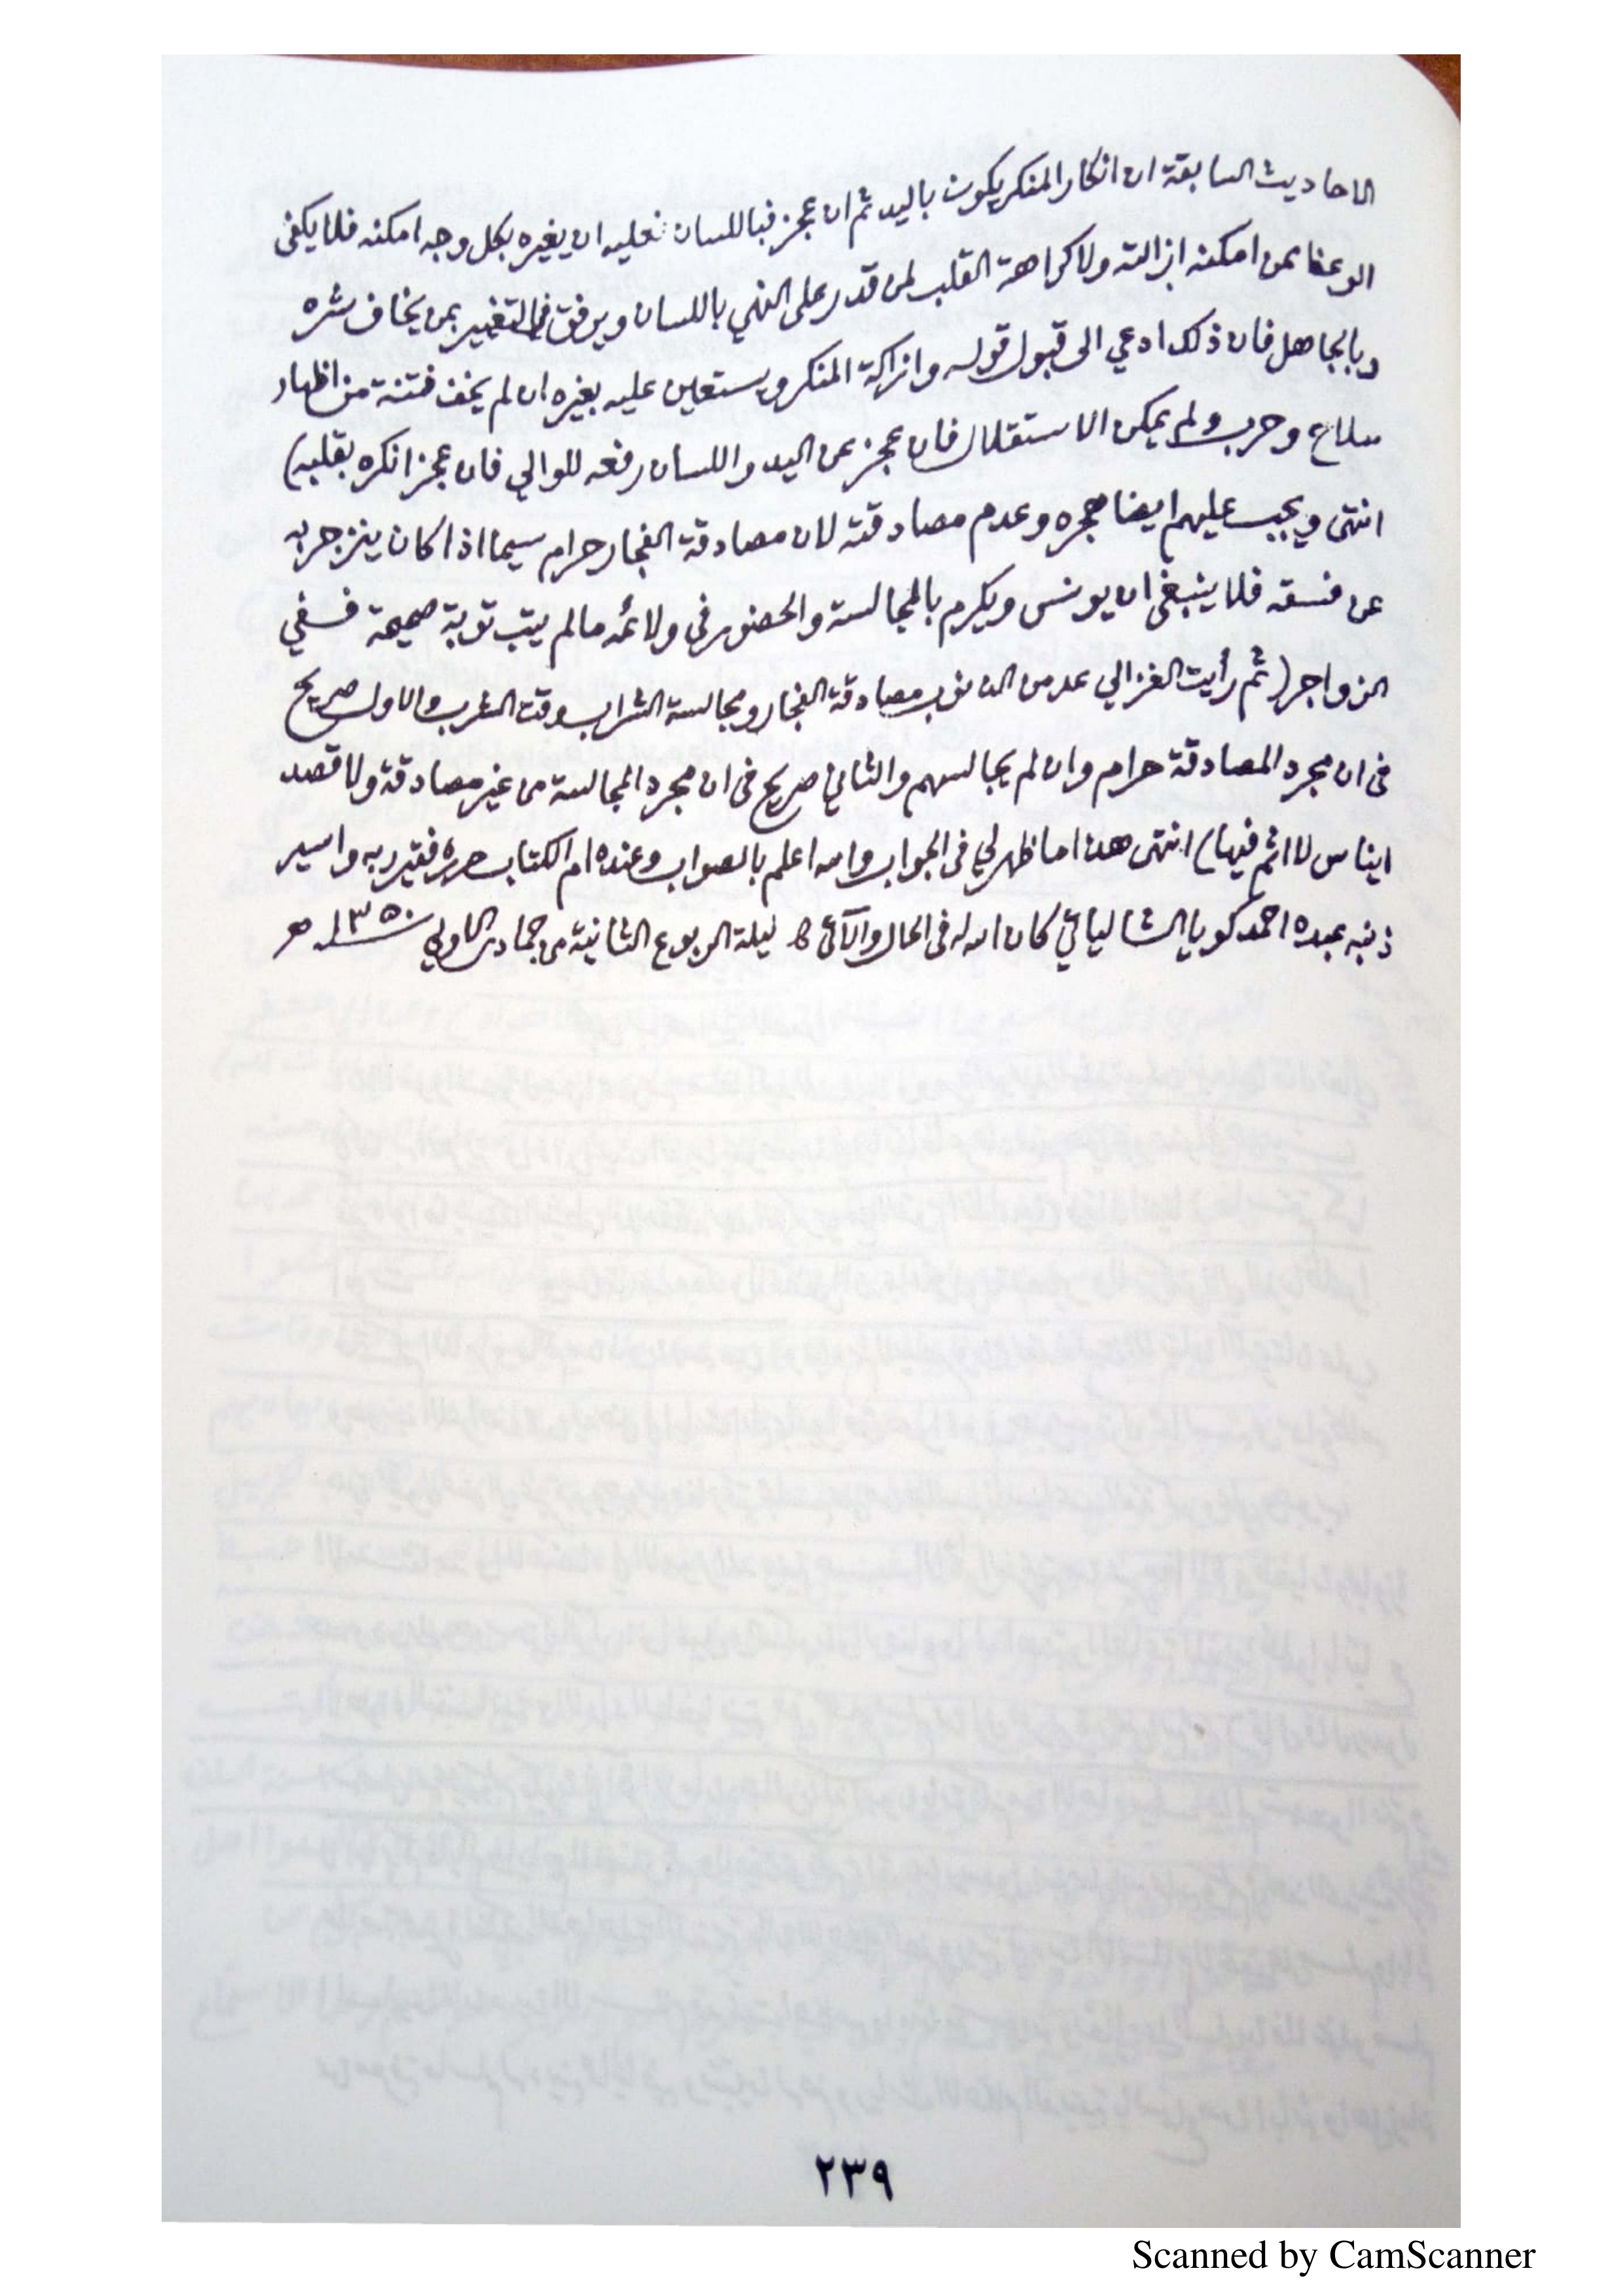 الاحاديث السابقة ان انكار المنكر يكون باليد ثم ان عجز فباللسان فعليه ان يغيره بكل وجه امكنه فلا يكفى
الوعظ لمن امكنه ازالته ولا كراهة القلب لمن قدر على النهي باللسان ويرفق في التغيير بمن يخاف شره
وبالجاهل فان ذلك ادعي الى قبول قوله وازالة المنكر ويستعين عليه بغيره ان لم يخف فتنة من اظهار
سلاح وحرب ولم يمكن الاستقلال فان عجز عن اليد واللسان رفعه للوالي فان عجز انكره بقلبه)
انتهى ويجب عليهم ايضا هجره وعدم مصادقته لان مصادقة الفجار حرام سيما اذا كان ينزجر به
عن فسقه فلا ينبغى ان يونس ويكرم بالمجالسة والحضور فى ولائمه مالم يتب توبة صحيحة ففي
الزواجر (ثم رأيت الغزالي عد من الذنوب مصادقة الفجار ومجالسة الشراب وقت الشرب والاول صريح
فى ان مجرد المصادقة حرام وان لم يجالسهم والثاني صريح فى ان مجرد المجالسة من غير مصادقة ولا قصد
ايناس لا اثم فيها) انتهى هذا ما ظهر لي فى الجواب والله اعلم بالصواب وعنده ام الكتاب حرره فقير ربه واسير
ذنبه عبده احمد كويا الشالياتي كان الله له فى الحال والآتى ليلة الربوع الثانية من جمادى الاولي سنة ١٣٥٠ هـ
٢٣٩
Scanned by CamScanner